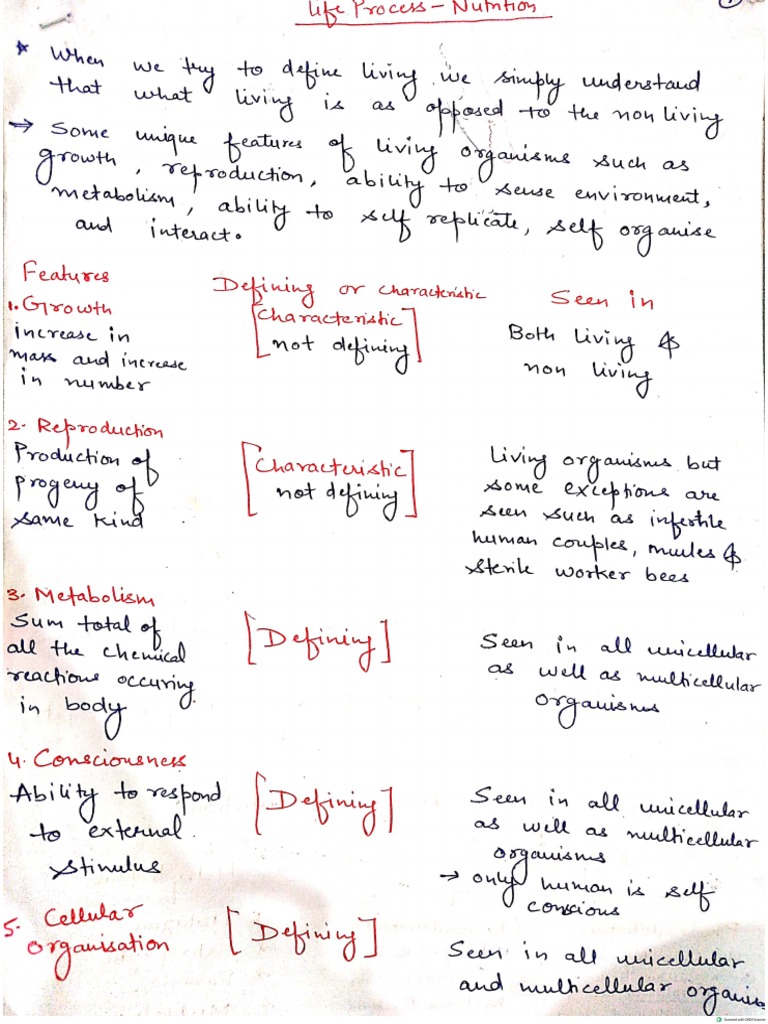 Life Process - Nutrition
* When we try to define living we simply understand
that what living is as opposed to the non living
→ Some unique features of living organisms such as
growth, reproduction, ability to sense environment,
metabolism, ability to self replicate, self organise
and interact.
Features
Defining or characteristic
Seen in
1. Growth
increase in
mass and increase
in number
[Characteristic
not defining]
Both living &
non living
2. Reproduction
Production of
progeny of
same kind
[Characteristic
not defining]
Living organisms but
some exceptions are
seen such as infertile
human couples, mules &
sterile worker bees
3. Metabolism
Sum total of
all the chemical
reactions occuring
in body
[Defining]
Seen in all unicellular
as well as multicellular
organisms
4. Consciousness
Ability to respond
to external
stimulus
[Defining]
Seen in all unicellular
as well as multicellular
organisms
→ only human is self
conscious
5. Cellular
organisation
[Defining]
Seen in all unicellular
and multicellular organism